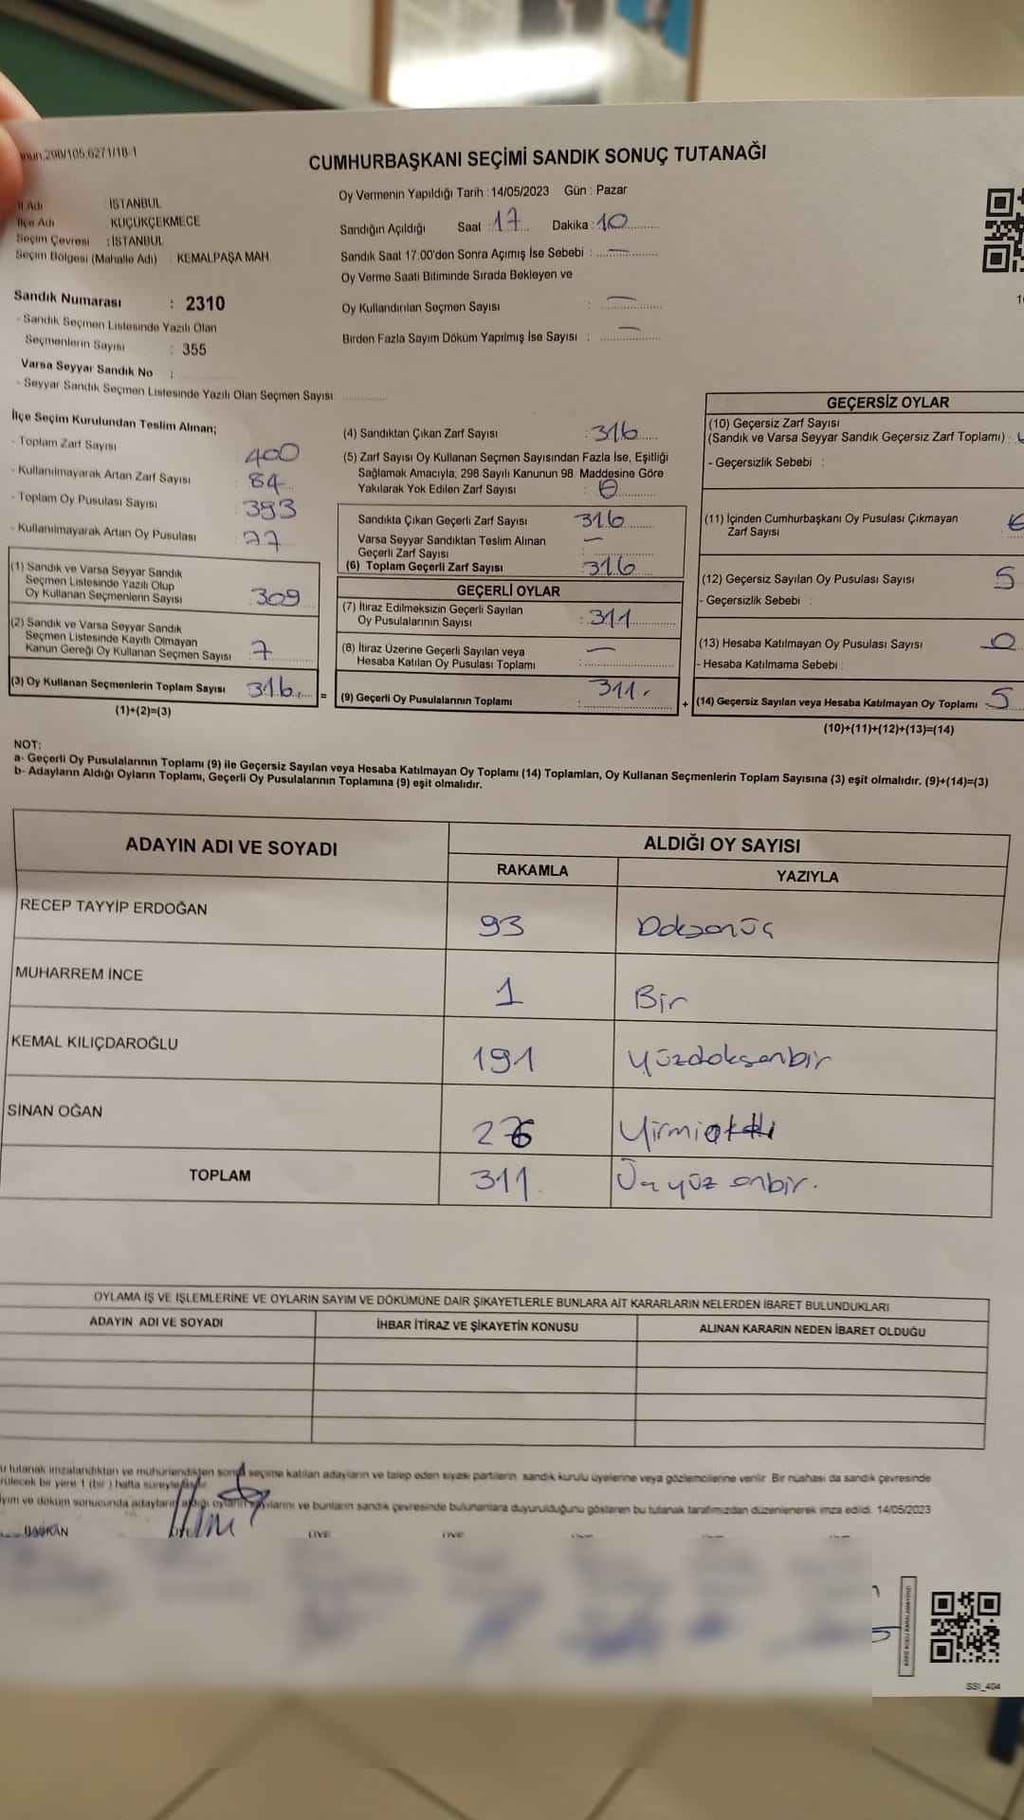 298/105,6271/18-1
CUMHURBAŞKANI SEÇİMİ SANDIK SONUÇ TUTANAĞI
İl Adı : İSTANBUL
İlçe Adı : KÜÇÜKÇEKMECE
Seçim Çevresi : İSTANBUL
Seçim Bölgesi (Mahalle Adı) : KEMALPAŞA MAH.
Sandık Numarası : 2310
- Sandık Seçmen Listesinde Yazılı Olan
Seçmenlerin Sayısı : 355
Varsa Seyyar Sandık No :
- Seyyar Sandık Seçmen Listesinde Yazılı Olan Seçmen Sayısı
Oy Vermenin Yapıldığı Tarih : 14/05/2023 Gün : Pazar
Sandığın Açıldığı Saat : 17 Dakika : 10
Sandık Saat 17.00'den Sonra Açımış İse Sebebi : —
Oy Verme Saati Bitiminde Sırada Bekleyen ve
Oy Kullandırılan Seçmen Sayısı : —
Birden Fazla Sayım Döküm Yapılmış İse Sayısı : —
İlçe Seçim Kurulundan Teslim Alınan;
- Toplam Zarf Sayısı 400
- Kullanılmayarak Artan Zarf Sayısı 84
- Toplam Oy Pusulası Sayısı 393
- Kullanılmayarak Artan Oy Pusulası 77
(1) Sandık ve Varsa Seyyar Sandık
Seçmen Listesinde Yazılı Olup
Oy Kullanan Seçmenlerin Sayısı 309
(2) Sandık ve Varsa Seyyar Sandık
Seçmen Listesinde Kayıtlı Olmayan
Kanun Gereği Oy Kullanan Seçmen Sayısı 7
(3) Oy Kullanan Seçmenlerin Toplam Sayısı 316 =
(1)+(2)=(3)
(4) Sandıktan Çıkan Zarf Sayısı : 316
(5) Zarf Sayısı Oy Kullanan Seçmen Sayısından Fazla İse, Eşitliği
Sağlamak Amacıyla, 298 Sayılı Kanunun 98. Maddesine Göre
Yakılarak Yok Edilen Zarf Sayısı : 0
Sandıkta Çıkan Geçerli Zarf Sayısı 316
Varsa Seyyar Sandıktan Teslim Alınan
Geçerli Zarf Sayısı : —
(6) Toplam Geçerli Zarf Sayısı : 316
GEÇERLİ OYLAR
(7) İtiraz Edilmeksizin Geçerli Sayılan
Oy Pusulalarının Sayısı : 311
(8) İtiraz Üzerine Geçerli Sayılan veya
Hesaba Katılan Oy Pusulası Toplamı : —
(9) Geçerli Oy Pusulalarının Toplamı : 311. +
GEÇERSİZ OYLAR
(10) Geçersiz Zarf Sayısı
(Sandık ve Varsa Seyyar Sandık Geçersiz Zarf Toplamı) :
- Geçersizlik Sebebi :
(11) İçinden Cumhurbaşkanı Oy Pusulası Çıkmayan
Zarf Sayısı
(12) Geçersiz Sayılan Oy Pusulası Sayısı 5
- Geçersizlik Sebebi :
(13) Hesaba Katılmayan Oy Pusulası Sayısı 0
- Hesaba Katılmama Sebebi :
(14) Geçersiz Sayılan veya Hesaba Katılmayan Oy Toplamı : 5
(10)+(11)+(12)+(13)=(14)
NOT:
a- Geçerli Oy Pusulalarının Toplamı (9) ile Geçersiz Sayılan veya Hesaba Katılmayan Oy Toplamı (14) Toplamları, Oy Kullanan Seçmenlerin Toplam Sayısına (3) eşit olmalıdır. (9)+(14)=(3)
b- Adayların Aldığı Oyların Toplamı, Geçerli Oy Pusulalarının Toplamına (9) eşit olmalıdır.
ADAYIN ADI VE SOYADI ALDIĞI OY SAYISI
RAKAMLA YAZIYLA
RECEP TAYYİP ERDOĞAN 93 Doksanüç
MUHARREM İNCE 1 Bir
KEMAL KILIÇDAROĞLU 191 Yüzdoksanbir
SİNAN OĞAN 26 Yirmialtı
TOPLAM 311. Üçyüz onbir.
OYLAMA İŞ VE İŞLEMLERİNE VE OYLARIN SAYIM VE DÖKÜMÜNE DAİR ŞİKAYETLERLE BUNLARA AİT KARARLARIN NELERDEN İBARET BULUNDUKLARI
ADAYIN ADI VE SOYADI İHBAR İTİRAZ VE ŞİKAYETİN KONUSU ALINAN KARARIN NEDEN İBARET OLDUĞU
tutanak imzalandıktan ve mühürlendikten sonra seçime katılan adayların ve talep eden siyasi partilerin sandık kurulu üyelerine veya gözlemcilerine verilir. Bir nüshası da sandık çevresinde
bir yere 1 (bir) hafta süreyle
ve döküm sonucunda adayların aldığı oyların sayılarını ve bunların sandık çevresinde bulunanlara duyurulduğunu gösteren bu tutanak tarafımızdan düzenlenerek imza edildi. 14/05/2023
BAŞKAN ÜYE ÜYE
SSI_404